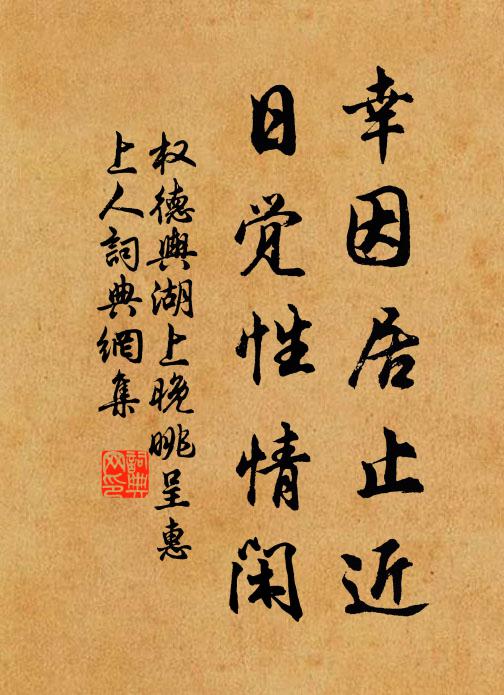 幸因居止近
日觉性情闲
权德舆湖上晚眺呈惠
上人詞典網集
詞典
网印